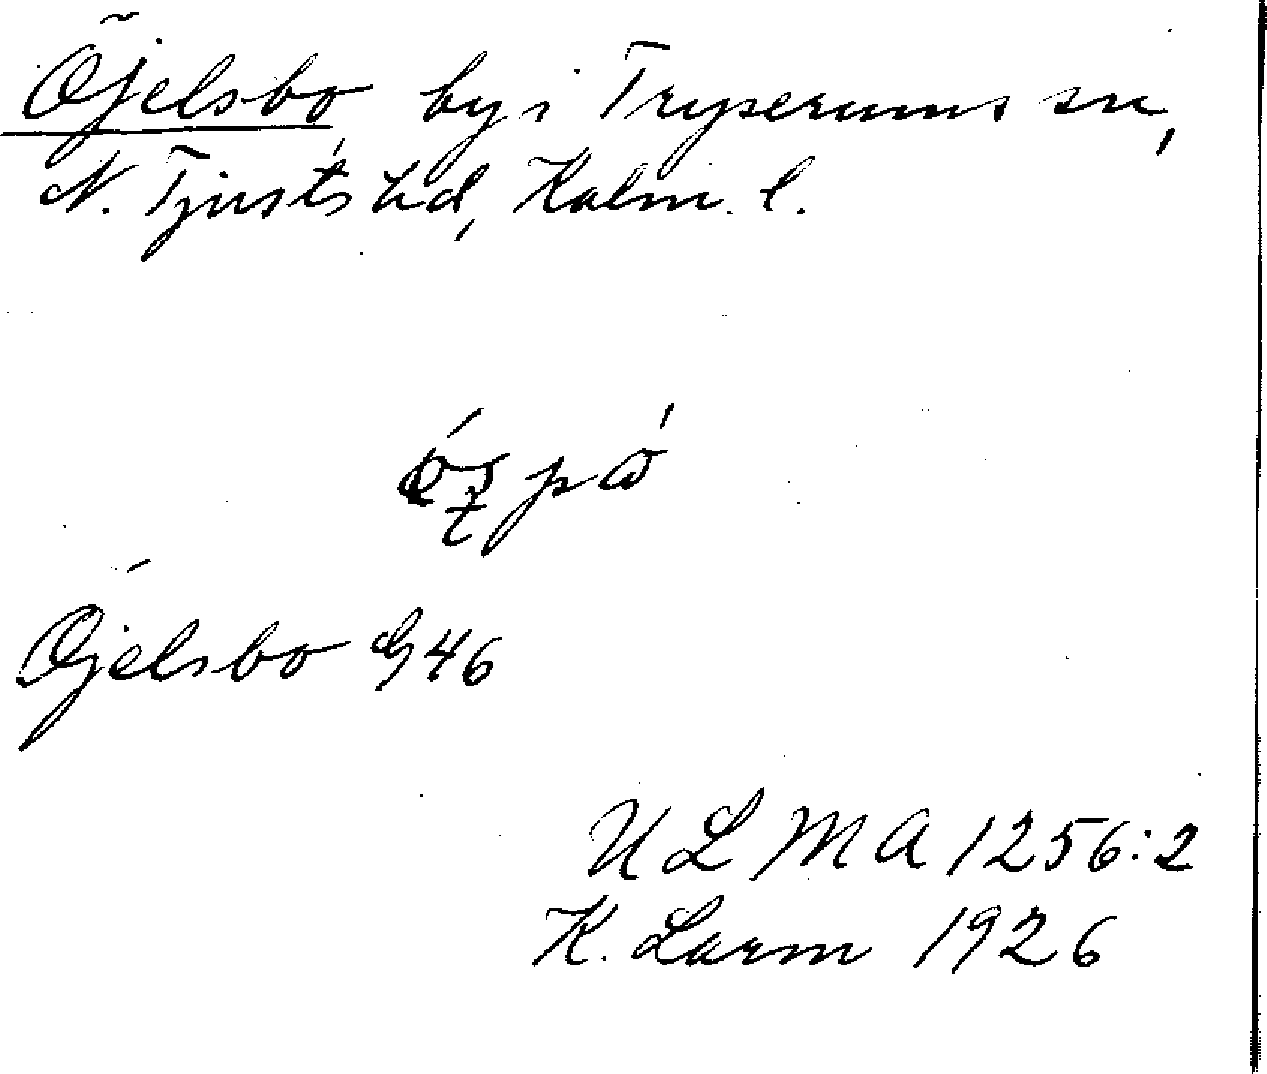 Öjelsbo by i Tryserums sn,
N. Tjusts hd, Kalm. l.
Öjelsbo G46
ULMA 1256:2
K. Larm 1926